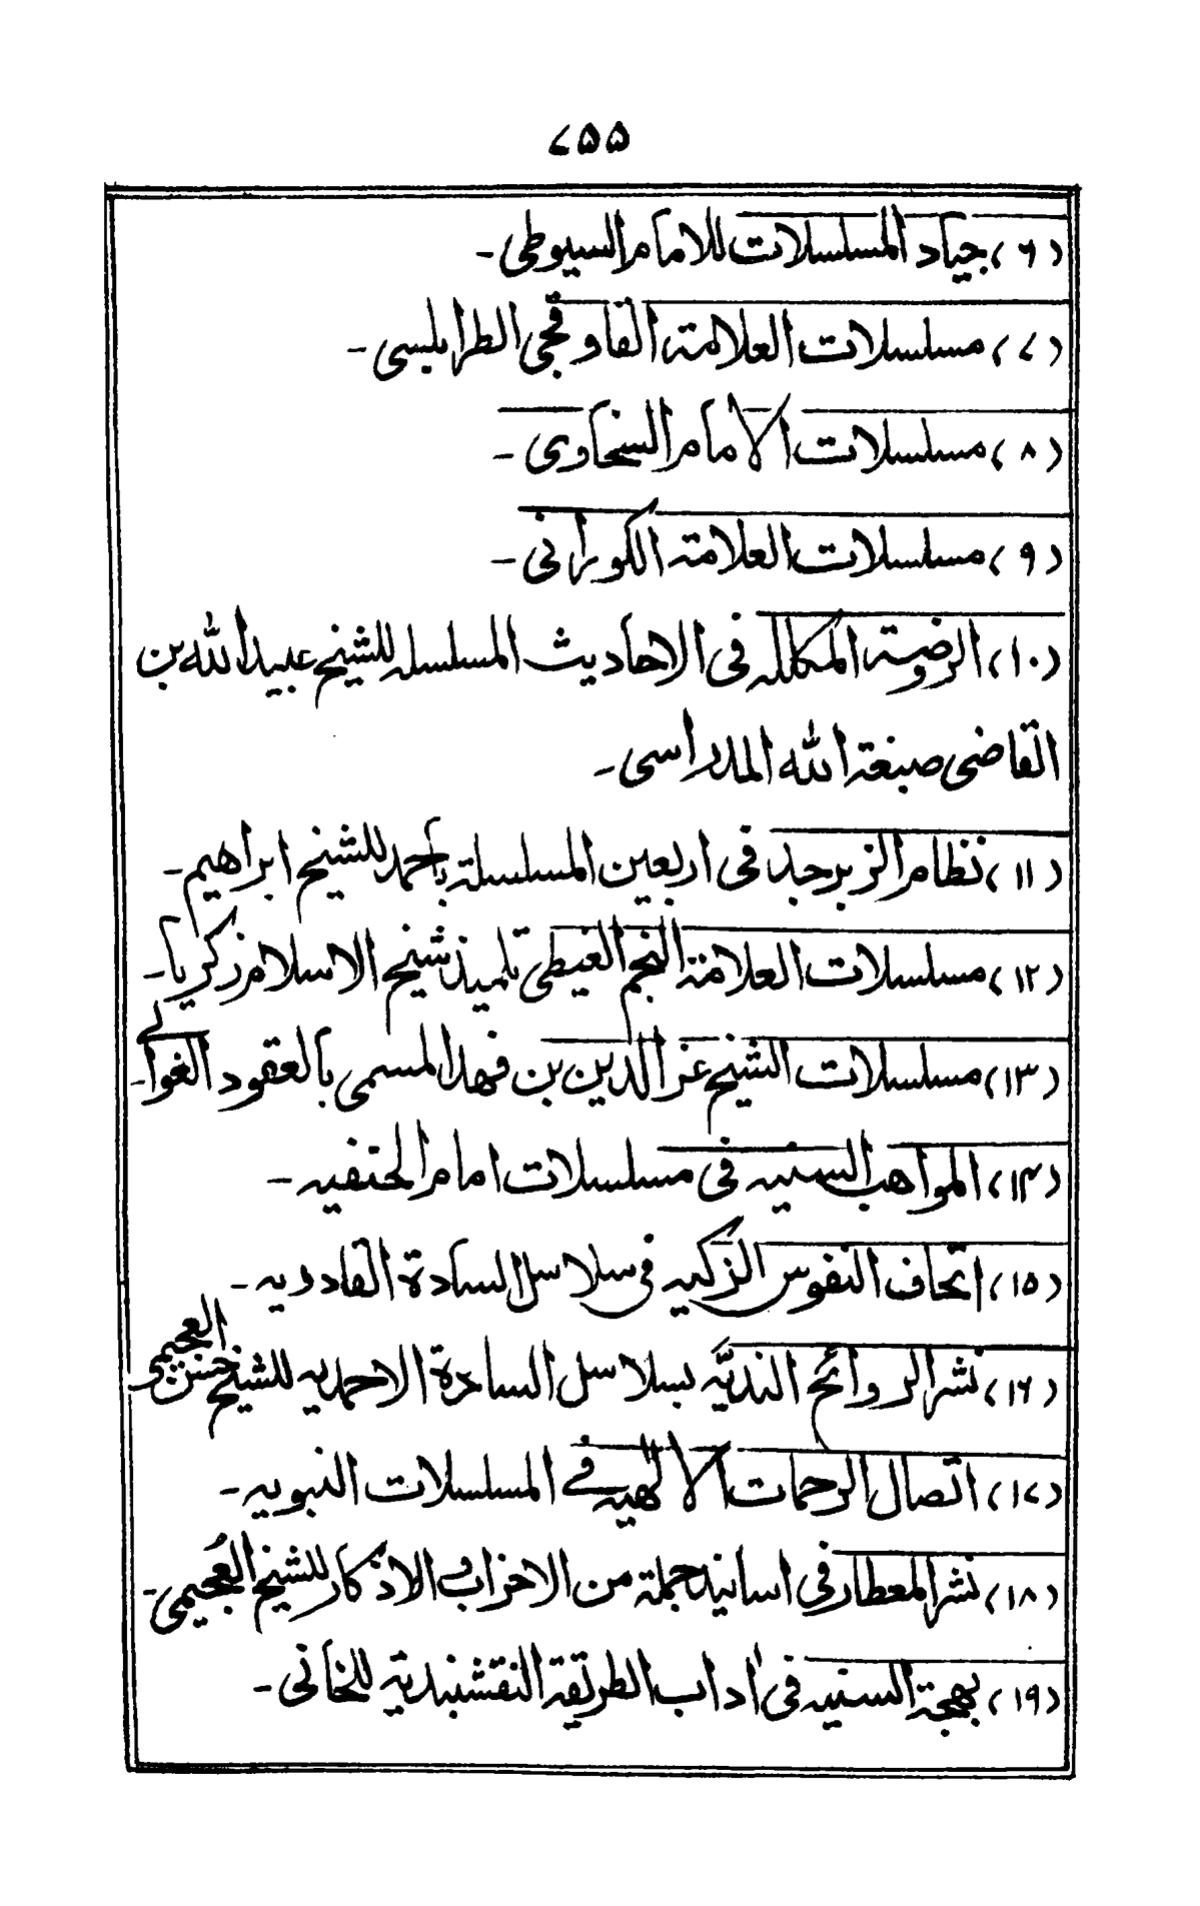 ۷۵۵
(۶) جیاد المسلسلات للامام السیوطی-
(۷) مسلسلات العلامۃ القاوقجی الطرابلسی-
(۸) مسلسلات الامام السخاوی-
(۹) مسلسلات العلامۃ الکورانی-
(۱۰) الروضۃ المکللہ فی الاحادیث المسلسلہ للشیخ عبید اللہ بن
القاضی صبغۃ اللہ المدراسی-
(۱۱) نظام الزبرجد فی اربعین المسلسلۃ باحمد للشیخ ابراھیم-
(۱۲) مسلسلات العلامۃ النجم الغیطی تلمیذ شیخ الاسلام زکریا-
(۱۳) مسلسلات الشیخ عز الدین بن فھد المسمی بالعقود الغوالے-
(۱۴) المواھب السنیہ فی مسلسلات امام الحنفیہ-
(۱۵) اتحاف النفوس الزکیہ فی سلاسل السادۃ القادریہ-
(۱۶) نشر الروائح الندیَّہ بسلاسل السادۃ الاحمدیہ للشیخ حسن العجیمی
(۱۷) اتصال الرحمات الالٰھیہ فے المسلسلات النبویہ-
(۱۸) نشر المعطار فی اسانید جملۃ من الاحزاب و الاذکار للشیخ العُجیمی-
(۱۹) بھجۃ السنیہ فی اٰداب الطریقۃ النقشبندیۃ للخانی-